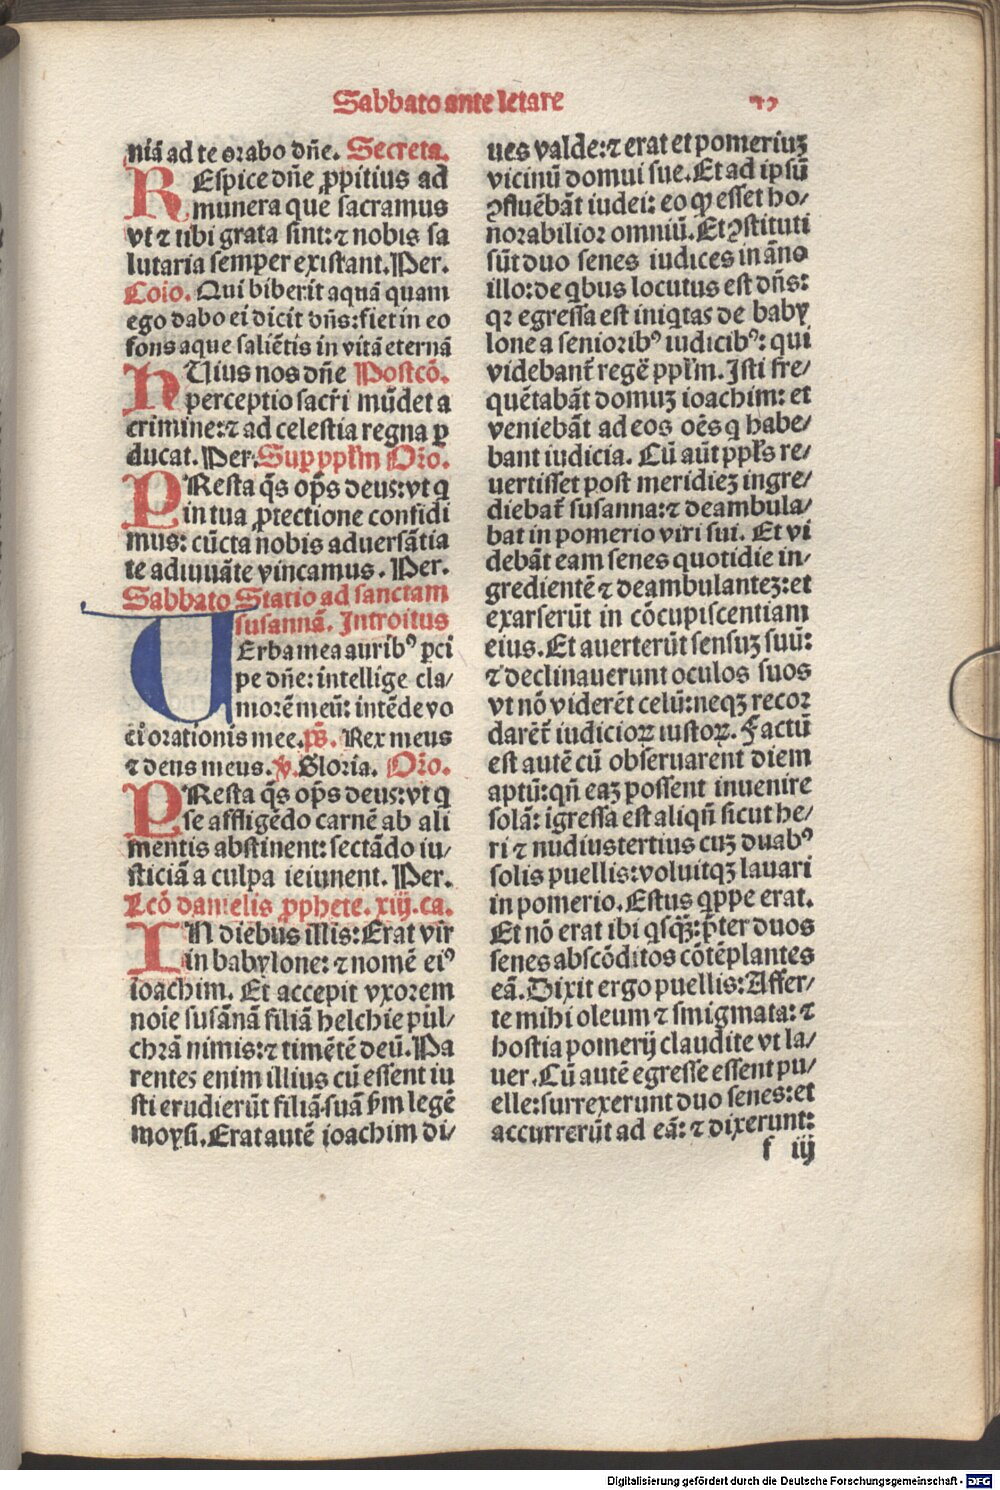 Sabbato ante letare
niã ad te orabo dñe. Secreta.
REspice dñe ꝓpitius ad
munera que sacramus
vt ⁊ tibi grata sint: ⁊ nobis sa
lutaria semper existant. Per.
Coio. Qui biberit aquã quam
ego dabo ei dicit dñs: fiet in eo
fons aque saliẽtis in vitã eternã
HUius nos dñe Postcõ.
perceptio sacr̃i mũdet a
crimine: ⁊ ad celestia regna ꝑ
ducat. Per. Suꝑ ppl̃m Oro.
PResta q̃s op̃s deus: vt q
in tua ꝓtectione confidi
mus: cũcta nobis aduersãtia
te adiuuãte vincamus. Per.
Sabbato Statio ad sanctam
susannã. Introitus
UErba mea auribꝰ ꝑci
pe dñe: intellige cla/
morẽ meũ: intẽde vo
ci orationis mee. p̃s. Rex meus
⁊ deus meus. ℣. Gloria. Oro.
PResta q̃s op̃s deus: vt q
se affligẽdo carnẽ ab ali
mentis abstinent: sectãdo iu/
sticiã a culpa ieiunent. Per.
Lcõ danielis ꝓphete. xiij. ca.
IN diebus illis: Erat vir
in babylone: ⁊ nomẽ eiꝰ
ioachim. Et accepit vxorem
noie susãnã filiã helchie pul/
chrã nimis: ⁊ timẽtẽ deũ. Pa
rentes enim illius cũ essent iu
sti erudierũt filiã suã s̃m legẽ
moysi. Erat autẽ ioachim di/
ues valde: ⁊ erat et pomeriuꝫ
vicinũ domui sue. Et ad ipsũ
ꝯfluẽbãt iudei: eo ꝙ esset ho/
norabilior omniũ. Et ꝯstituti
sũt duo senes iudices in ãno
illo: de qbus locutus est dñs:
qꝛ egressa est iniqtas de baby
lone a senioribꝰ iudicibꝰ: qui
videbant̃ regẽ ppl̃m. Isti fre/
quẽtabãt domuꝫ ioachim: et
veniebãt ad eos oẽs q habe/
bant iudicia. Cũ aũt ppl̃s re/
uertisset post meridieꝫ ingre/
diebat̃ susanna: ⁊ deambula/
bat in pomerio viri sui. Et vi
debãt eam senes quotidie in/
gredientẽ ⁊ deambulanteꝫ: et
exarserũt in cõcupiscentiam
eius. Et auerterũt sensuꝫ suũ:
⁊ declinauerunt oculos suos
vt nõ viderẽt celũ: neqꝫ recor
darẽt̃ iudicioꝝ iustoꝝ. Factũ
est autẽ cũ obseruarent diem
aptũ: qñ eaꝫ possent inuenire
solã: igressa est aliqñ sicut he/
ri ⁊ nudiustertius cuꝫ duabꝰ
solis puellis: voluitqꝫ lauari
in pomerio. Estus qppe erat.
Et nõ erat ibi qsqꝫ: p̃ter duos
senes abscõditos cõtẽplantes
eã. Dixit ergo puellis: Affer/
te mihi oleum ⁊ smigmata: ⁊
hostia pomerij claudite vt la/
uer. Cũ autẽ egresse essent pu/
elle: surrexerunt duo senes: et
accurrerũt ad eã: ⁊ dixerunt:
f iij
Digitalisierung gefördert durch die Deutsche Forschungsgemeinschaft - DFG